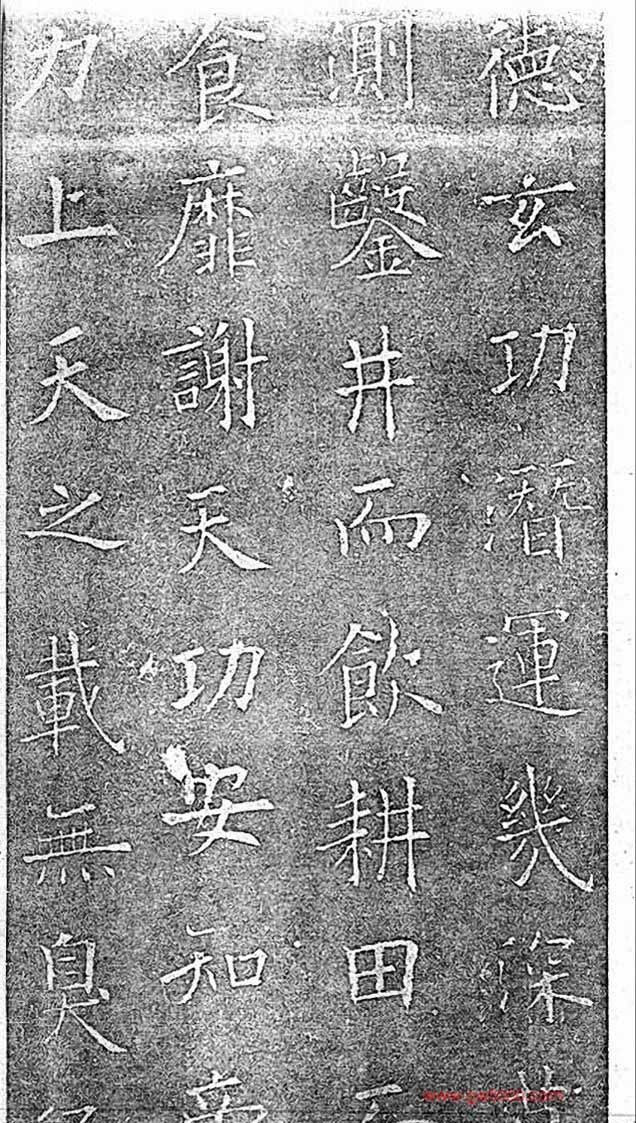 德玄功潛運幾深
測鑿井而飲耕田
食靡謝天功安知
力上天之載無臭